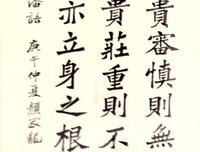 貴審慎則無
貴莊重則不
亦立身之根
語 庚午仲夏顏家龍